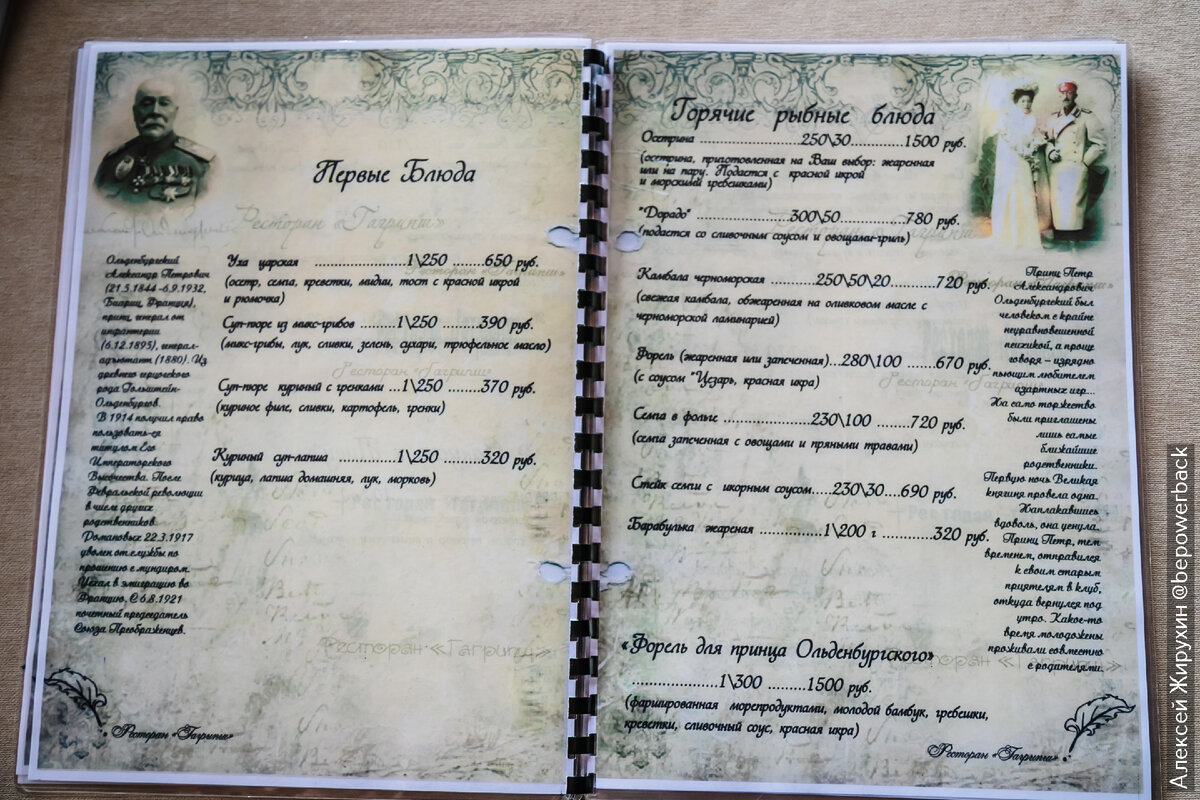 Первые Блюда
Ресторан «Гагрипш»
Ольденбургский
Александр Петрович
(21.5.1844 -6.9.1932,
Биариц, Франция),
принц, генерал от
инфантерии
(6.12.1895), генерал-
адъютант (1880). Из
древнего
рода Гольштейн-
Ольденбургов.
В 1914 получил право
пользовать-ся
титулом Его
Императорского
Высочества. После
Февральской революции
в числе других
родственников
Романовых 22.3.1917
уволен от службы по
прошению с мундиром.
Уехал в эмиграцию во
Францию. С 6.8.1921
почетный председатель
Союза Преображенцев.
Уха царская ..................1\250 .........650 руб.
(осетр, семга, креветки, мидии, тост с красной икрой
и рюмочка)
Суп-пюре из микс-грибов ..........1\250 .........390 руб.
(микс-грибы, лук, сливки, зелень, сухари, трюфельное масло)
Ресторан «Гагрипш»
Суп-пюре куриный с гренками ...1\250 .........370 руб.
(куриное филе, сливки, картофель, гренки)
Куриный суп-лапша ..............1\250 .........320 руб.
(курица, лапша домашняя, лук, морковь)
Ресторан «Гагрипш»
Ресторан «Гагрипш»
Горячие рыбные блюда
Осетрина .....................250\30...........1500 руб.
(осетрина, приготовленная на Ваш выбор: жаренная
или на пару. Подается с красной икрой
и морскими гребешками)
"Дорадо" ....................300\50..............780 руб.
(подается со сливочным соусом и овощами-гриль)
Камбала черноморская .........250\50\20 .........720 руб.
(свежая камбала, обжаренная на оливковом масле с
черноморской ламинарией)
Форель (жаренная или запеченная)...280\100 .......670 руб.
(с соусом "Цезарь, красная икра)
Семга в фольге ...................230\100 ........720 руб.
(семга запеченная с овощами и пряными травами)
Стейк семги с икорным соусом.....230\30....690 руб.
Барабулька жареная ..............1\200 г ............320 руб.
«Форель для принца Ольденбургского»
...................1\300 .........1500 руб.
(фаршированная морепродуктами, молодой бамбук, гребешки,
креветки, сливочный соус, красная икра)
Принц Петр
Александрович
Ольденбургский был
человеком с крайне
неуравновешенной
психикой, а проще
говоря – изрядно
пьющим любителем
азартных игр...
На само торжество
были приглашены
лишь самые
ближайшие
родственники.
Первую ночь Великая
княгиня провела одна.
Наплакавшись
вдоволь, она уснула.
Принц Петр, тем
временем, отправился
к своим старым
приятелям в клуб,
откуда вернулся под
утро. Какое-то
время молодожены
проживали совместно
с родителями.
Ресторан «Гагрипш»
Алексей Жирухин @bepowerback